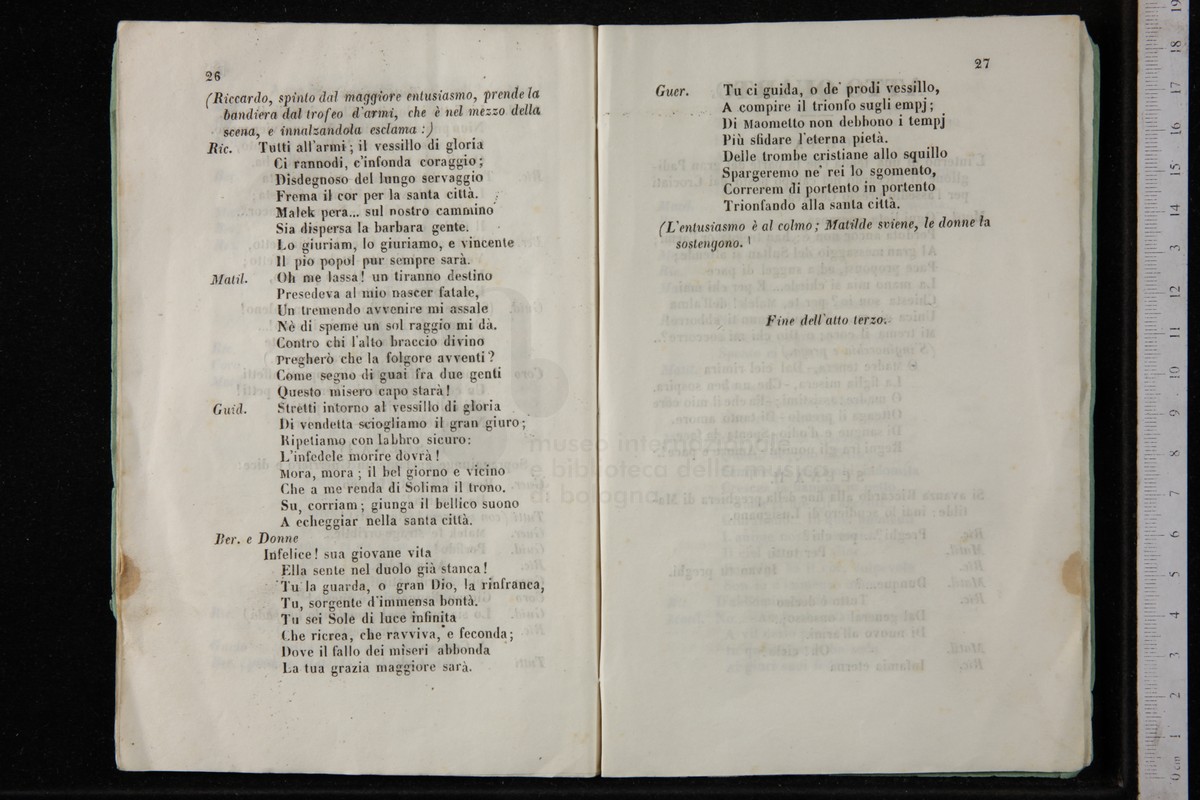 26
(Riccardo, spinto dal maggiore entusiasmo, prende la
bandiera dal trofeo d'armi, che è nel mezzo della
scena, e innalzandola esclama :)
Ric. Tutti all'armi ; il vessillo di gloria
Ci rannodi, c'infonda coraggio ;
Disdegnoso del lungo servaggio
Frema il cor per la santa città.
Malek pera... sul nostro cammino
Sia dispersa la barbara gente.
Lo giuriam, lo giuriamo, e vincente
Il pio popol pur sempre sarà.
Matil. Oh me lassa! un tiranno destino
Presedeva al mio nascer fatale,
Un tremendo avvenire mi assale
Nè di speme un sol raggio mi dà.
Contro chi l'alto braccio divino
Pregherò che la folgore avventi ?
Come segno di guai fra due genti
Questo misero capo starà!
Guid. Stretti intorno al vessillo di gloria
Di vendetta sciogliamo il gran giuro ;
Ripetiamo con labbro sicuro:
L'infedele morire dovrà !
Mora, mora ; il bel giorno e vicino
Che a me renda di Solima il trono.
Su, corriam ; giunga il bellico suono
A echeggiar nella santa città.
Ber. e Donne
Infelice! sua giovane vita
Ella sente nel duolo già stanca!
Tu la guarda, o gran Dio, la rinfranca,
Tu, sorgente d'immensa bontà.
Tu sei Sole di luce infinita
Che ricrea, che ravviva, e feconda ;
Dove il fallo dei miseri abbonda
La tua grazia maggiore sarà.
27
Guer. Tu ci guida, o de' prodi vessillo,
A compire il trionfo sugli empj ;
Di Maometto non debbono i tempj
Più sfidare l'eterna pietà.
Delle trombe cristiane allo squillo
Spargeremo ne' rei lo sgomento,
Correrem di portento in portento
Trionfando alla santa città.
(L'entusiasmo è al colmo ; Matilde sviene, le donne la
sostengono.
Fine dell'atto terzo.
museo internazionale
e biblioteca della musica
di bologna